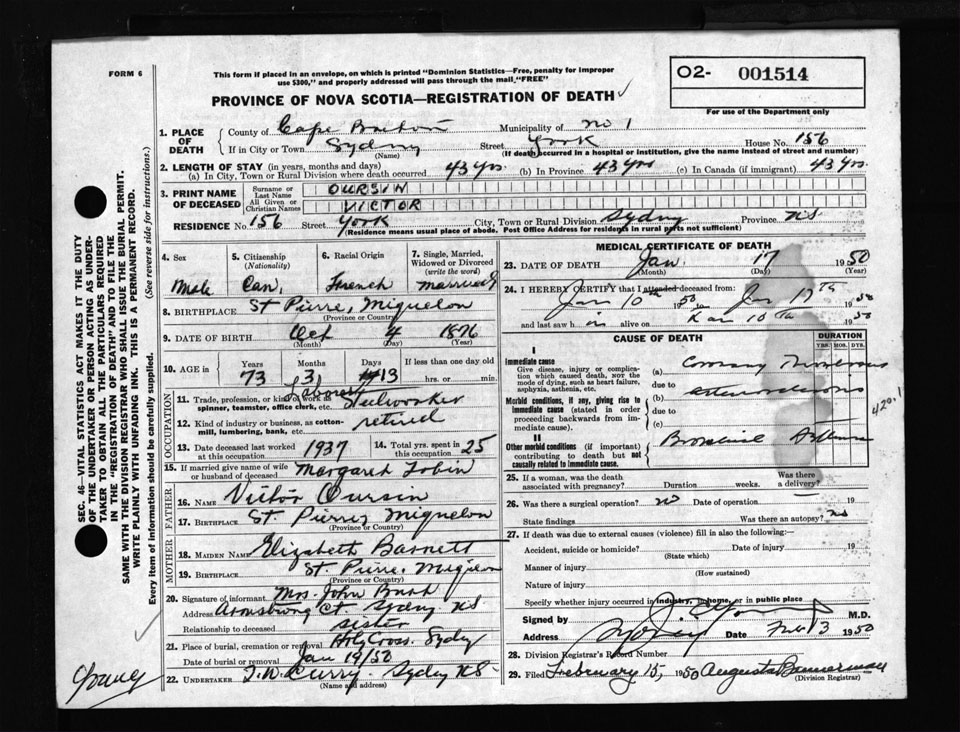 FORM 6
This form if placed in an envelope, on which is printed "Dominion Statistics—Free, penalty for improper
use $300," and properly addressed will pass through the mail, "FREE"
O2- 001514
For use of the Department only
PROVINCE OF NOVA SCOTIA—REGISTRATION OF DEATH
1. PLACE OF DEATH
County of Cape Breton Municipality of No 1
If in City or Town Sydney Street York House No. 156
(Name) (If death occurred in a hospital or institution, give the name instead of street and number)
2. LENGTH OF STAY (in years, months and days)
(a) In City, Town or Rural Division where death occurred 43 yrs. (b) In Province 43 yrs (c) In Canada (if immigrant) 43 yrs.
3. PRINT NAME OF DECEASED
Surname or Last Name OURSIN
All Given or Christian Names VICTOR
RESIDENCE No. 156 Street York City, Town or Rural Division Sydney Province N.S
(Residence means usual place of abode. Post Office Address for residents in rural parts not sufficient)
4. Sex Male
5. Citizenship (Nationality) Can.
6. Racial Origin French
7. Single, Married, Widowed or Divorced (write the word) married
8. BIRTHPLACE St Pierre, Miquelon
(Province or Country)
9. DATE OF BIRTH Oct 4 1876
(Month) (Day) (Year)
10. AGE in Years Months Days If less than one day old
73 3 13 hrs. or min.
OCCUPATION
11. Trade, profession, or kind of work as spinner, teamster, office clerk, etc. Laborer Steelworker
12. Kind of industry or business, as cotton-mill, lumbering, bank, etc. retired
13. Date deceased last worked at this occupation 1937
14. Total yrs. spent in this occupation 25
15. If married give name of wife or husband of deceased Margaret Tobin
FATHER
16. NAME Victor Oursin
17. BIRTHPLACE St. Pierre, Miquelon
(Province or Country)
MOTHER
18. MAIDEN NAME Elizabeth Barnett
19. BIRTHPLACE St. Pierre, Miquelon
(Province or Country)
20. Signature of informant Mrs. John
Address Armstrong Ct Sydney NS
Relationship to deceased sister
21. Place of burial, cremation or removal Holy Cross. Sydney
Date of burial or removal Jan 19/50
22. UNDERTAKER T.W. Curry. Sydney NS
(Name and address)
MEDICAL CERTIFICATE OF DEATH
23. DATE OF DEATH Jan. 17 1950
(Month) (Day) (Year)
24. I HEREBY CERTIFY that I attended deceased from:
Jan 10th 1950 to Jan 17th 1950
and last saw h im alive on Jan 10th 1950
CAUSE OF DEATH
DURATION
YRS. MOS. DYS.
I
Immediate cause
Give disease, injury or complication which caused death, not the mode of dying, such as heart failure, asphyxia, asthenia, etc.
(a) Coronary Thrombosis
due to
Morbid conditions, if any, giving rise to immediate cause (stated in order proceeding backwards from immediate cause).
(b) arteriosclerosis
due to
(c)
420.1
II
Other morbid conditions (if important) contributing to death but not causally related to immediate cause.
Bronchial Asthma
25. If a woman, was the death associated with pregnancy? Duration weeks. Was there a delivery?
26. Was there a surgical operation? no Date of operation 19
State findings Was there an autopsy? no
27. If death was due to external causes (violence) fill in also the following:—
Accident, suicide or homicide? Date of injury 19
(State which)
Manner of injury
(How sustained)
Nature of injury
Specify whether injury occurred in industry, in home, or in public place
Signed by M.D.
Address Sydney Date Feb 13 1950
28. Division Registrar's Record Number
29. Filed February 15, 1950 Augusta Bannerman
(Division Registrar)
SEC. 46 VITAL STATISTICS ACT MAKES IT THE DUTY
OF THE UNDERTAKER OR PERSON ACTING AS UNDER-
TAKER TO OBTAIN ALL THE PARTICULARS REQUIRED
IN THE "REGISTRATION OF DEATH" AND TO FILE THE
SAME WITH THE DIVISION REGISTRAR WHO SHALL ISSUE THE BURIAL PERMIT.
WRITE PLAINLY WITH UNFADING INK. THIS IS A PERMANENT RECORD.
Every item of information should be carefully supplied. (See reverse side for instructions.)